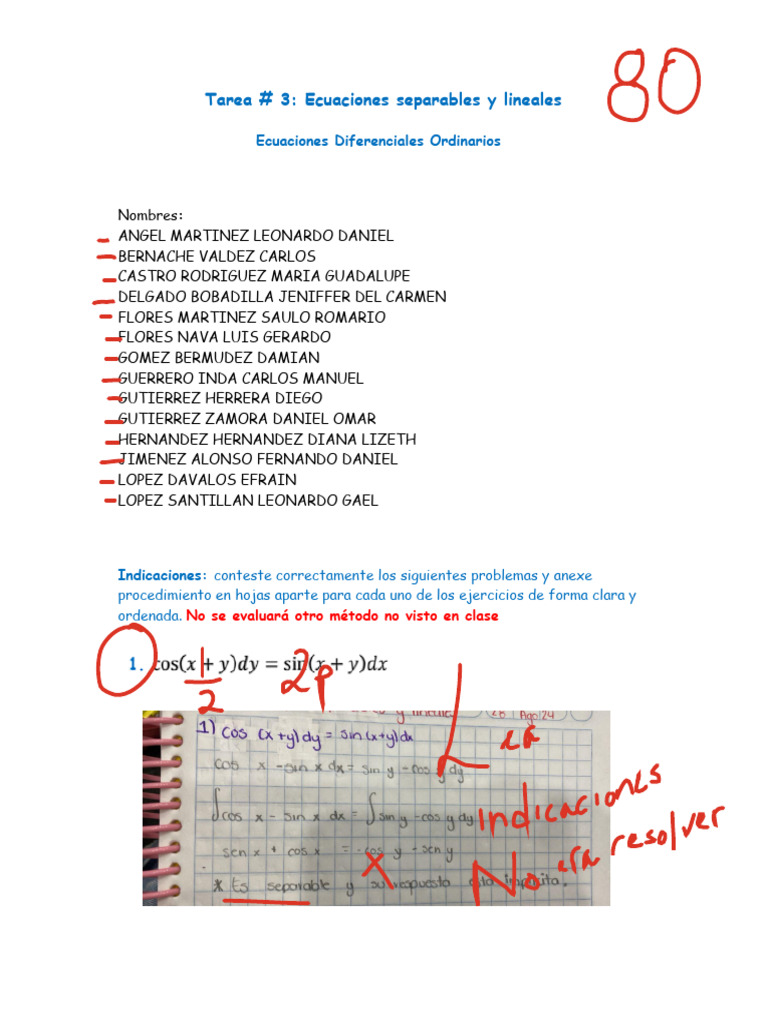 80
Tarea # 3: Ecuaciones separables y lineales
Ecuaciones Diferenciales Ordinarios
Nombres:
ANGEL MARTINEZ LEONARDO DANIEL
BERNACHE VALDEZ CARLOS
CASTRO RODRIGUEZ MARIA GUADALUPE
DELGADO BOBADILLA JENIFFER DEL CARMEN
FLORES MARTINEZ SAULO ROMARIO
FLORES NAVA LUIS GERARDO
GOMEZ BERMUDEZ DAMIAN
GUERRERO INDA CARLOS MANUEL
GUTIERREZ HERRERA DIEGO
GUTIERREZ ZAMORA DANIEL OMAR
HERNANDEZ HERNANDEZ DIANA LIZETH
JIMENEZ ALONSO FERNANDO DANIEL
LOPEZ DAVALOS EFRAIN
LOPEZ SANTILLAN LEONARDO GAEL
Indicaciones: conteste correctamente los siguientes problemas y anexe
procedimiento en hojas aparte para cada uno de los ejercicios de forma clara y
ordenada. No se evaluará otro método no visto en clase
1. cos(x + y)dy = sin(x + y)dx
1/2 2p
Ago 24
1) cos (x+y)dy = sin(x+y)dx
cos x - sin x dx = sin y - cos y dy
∫cos x - sin x dx = ∫sin y - cos y dy
sen x + cos x = -cos y - sen y
* Es separable y su respuesta esta implicita.
X
Indicaciones
No era resolver